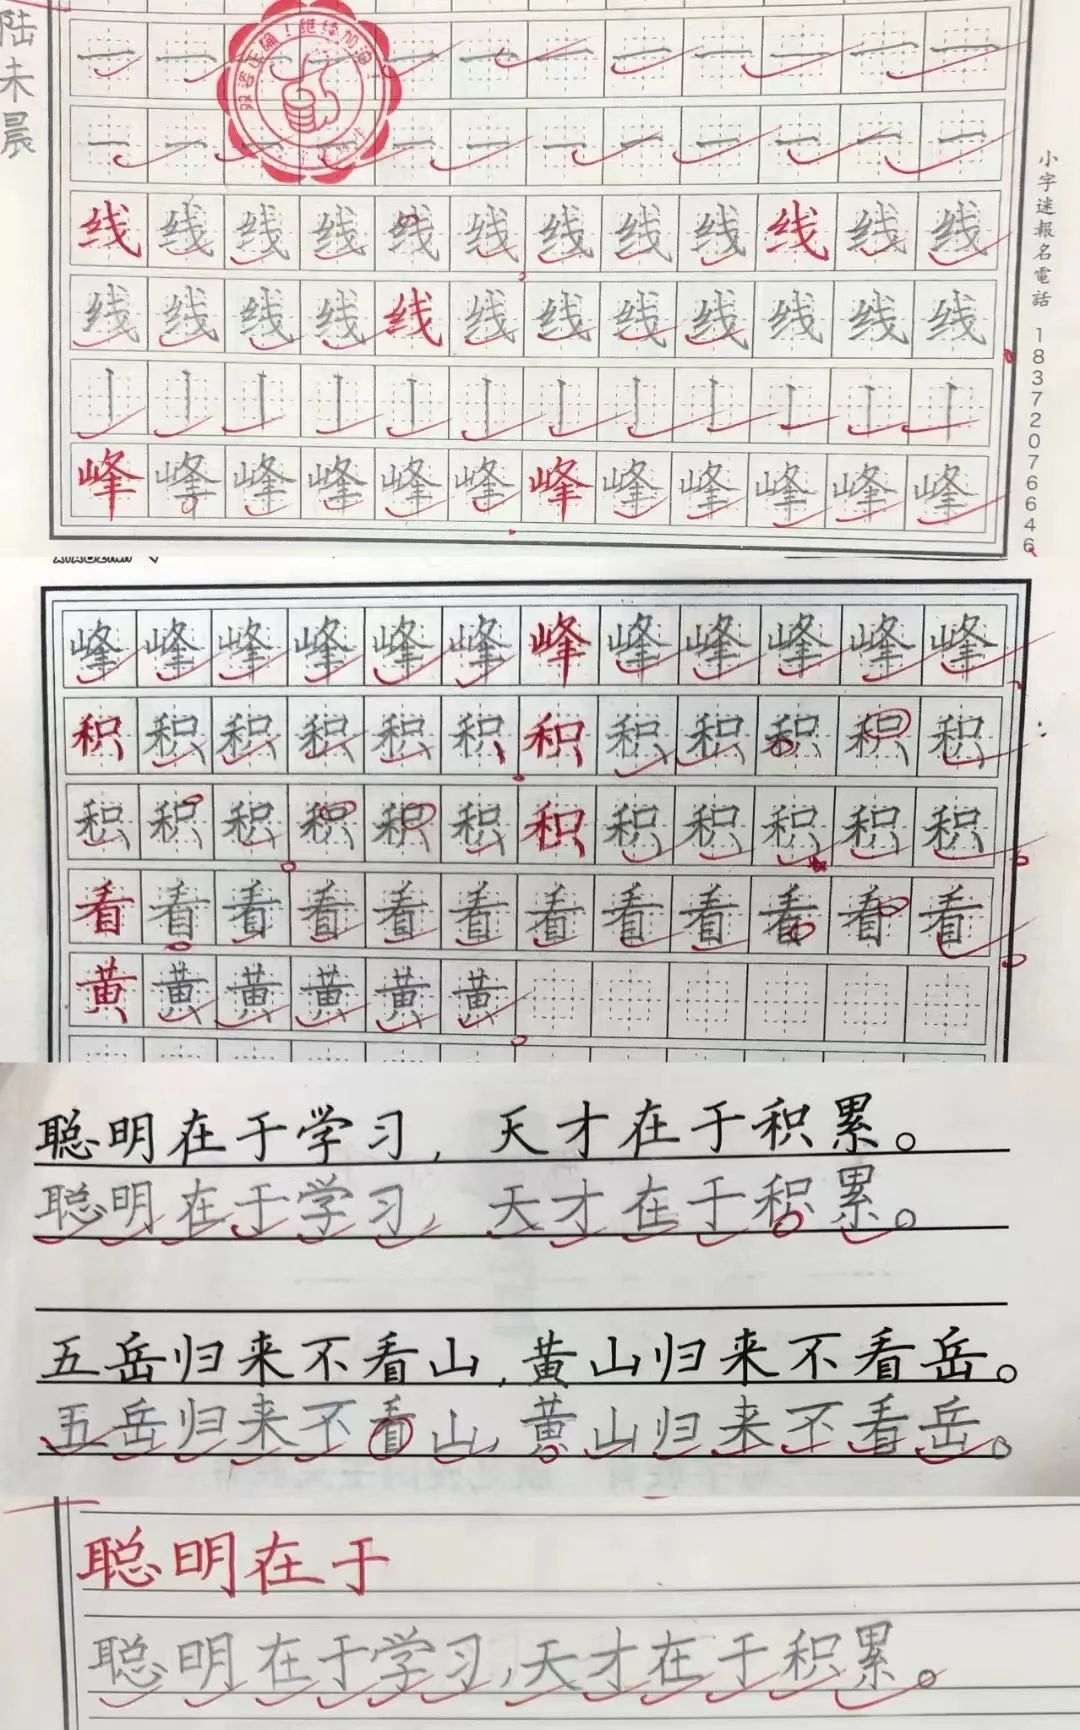 陆未晨
双姿正确!继续加油
一 一 一 一 一 一 一 一 一 一 一 一
一 一 一 一 一 一 一 一 一 一 一 一
线 线 线 线 线 线 线 线 线 线 线 线
线 线 线 线 线 线 线 线 线 线 线 线
丨 丨 丨 丨 丨 丨 丨 丨 丨 丨 丨 丨
峰 峰 峰 峰 峰 峰 峰 峰 峰 峰 峰 峰
小字迷報名電話 18372076646
峰 峰 峰 峰 峰 峰 峰 峰 峰 峰 峰 峰
积 积 积 积 积 积 积 积 积 积 积 积
积 积 积 积 积 积 积 积 积 积 积 积
看 看 看 看 看 看 看 看 看 看 看 看
黄 黄 黄 黄 黄 黄
聪明在于学习,天才在于积累。
聪明在于学习,天才在于积累。
五岳归来不看山,黄山归来不看岳。
五岳归来不看山,黄山归来不看岳。
聪明在于
聪明在于学习,天才在于积累。